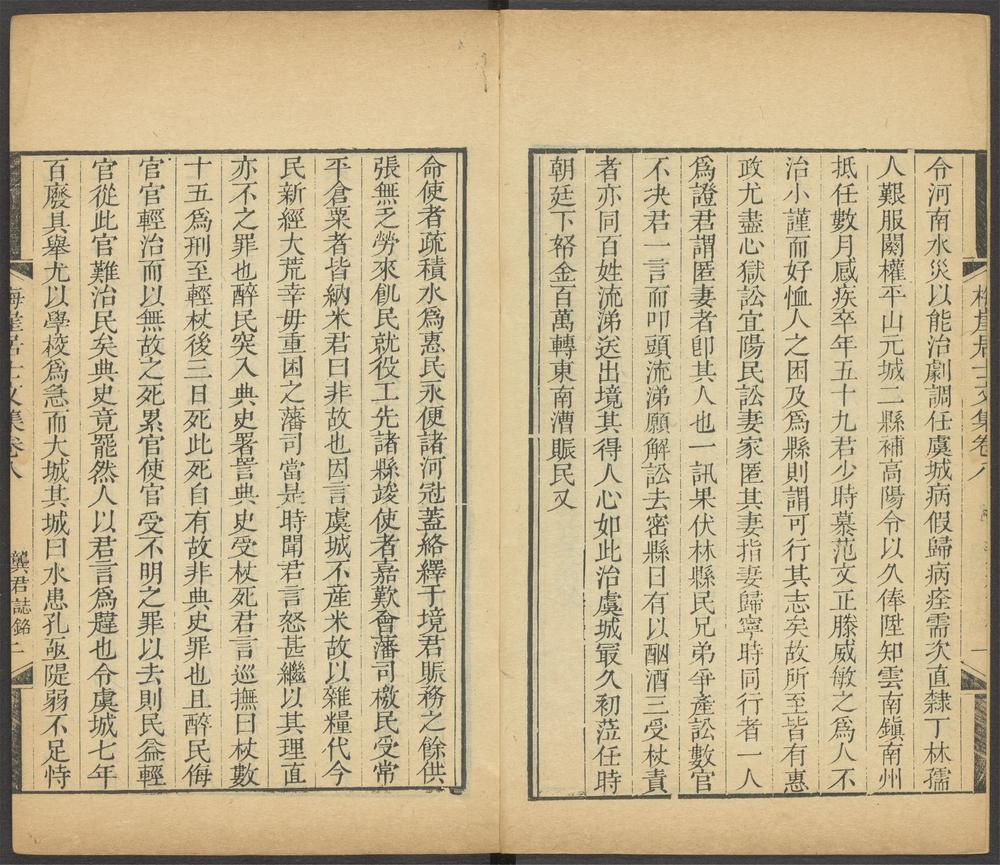 梅崖居士文集卷八
一
令河南水災以能治劇調任虞城病假歸病痊需次直隸丁林孺
人艱服闋權平山元城二縣補高陽令以久俸陞知雲南鎮南州
抵任數月感疾卒年五十九君少時慕范文正滕威敏之爲人不
治小謹而好恤人之困及爲縣則謂可行其志矣故所至皆有惠
政尤盡心獄訟宜陽民訟妻家匿其妻指妻歸寧時同行者一人
爲證君謂匿妻者卽其人也一訊果伏林縣民兄弟爭產訟數官
不决君一言而叩頭流涕願解訟去密縣日有以酗酒三受杖責
者亦同百姓流涕送出境其得人心如此治虞城最久初蒞任時
朝廷下帑金百萬轉東南漕賑民又
命使者疏積水爲惠民永便諸河冠蓋絡繹于境君賑務之餘供
張無乏勞來飢民就役工先諸縣竣使者嘉歎會藩司檄民受常
平倉粟者皆納米君曰非故也因言虞城不産米故以雜糧代今
民新經大荒幸毋重困之藩司當是時聞君言怒甚繼以其理直
亦不之罪也醉民突入典史署詈典史受杖死君言巡撫曰杖數
十五爲刑至輕杖後三日死此死自有故非典史罪也且醉民侮
官官輕治而以無故之死累官使官受不明之罪以去則民益輕
官從此官難治民矣典史竟罷然人以君言爲韙也令虞城七年
百廢具舉尤以學校爲急而大城其城曰水患孔亟隄弱不足恃
梅崖居士文集卷八
龔君誌銘
二